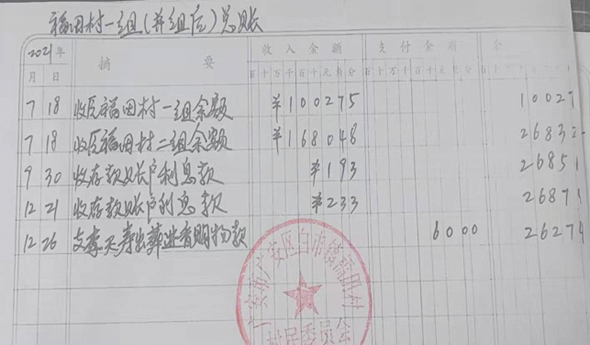 福田村一组(并组后)总账
2021年 摘要 收入金额 支付金额 余
月 日 百十万千百十元角分 百十万千百十元角分
7 18 收旧福田村一组余额 ¥100275 10027
7 18 收旧福田村二组余额 ¥168048 26832
9 30 收存款账户利息款 ¥193 26851
12 21 收存款账户利息款 ¥233 26871
12 26 支 天寿出葬 购物款 6000 26274
广安市广安区白市镇福田村
村民委员会